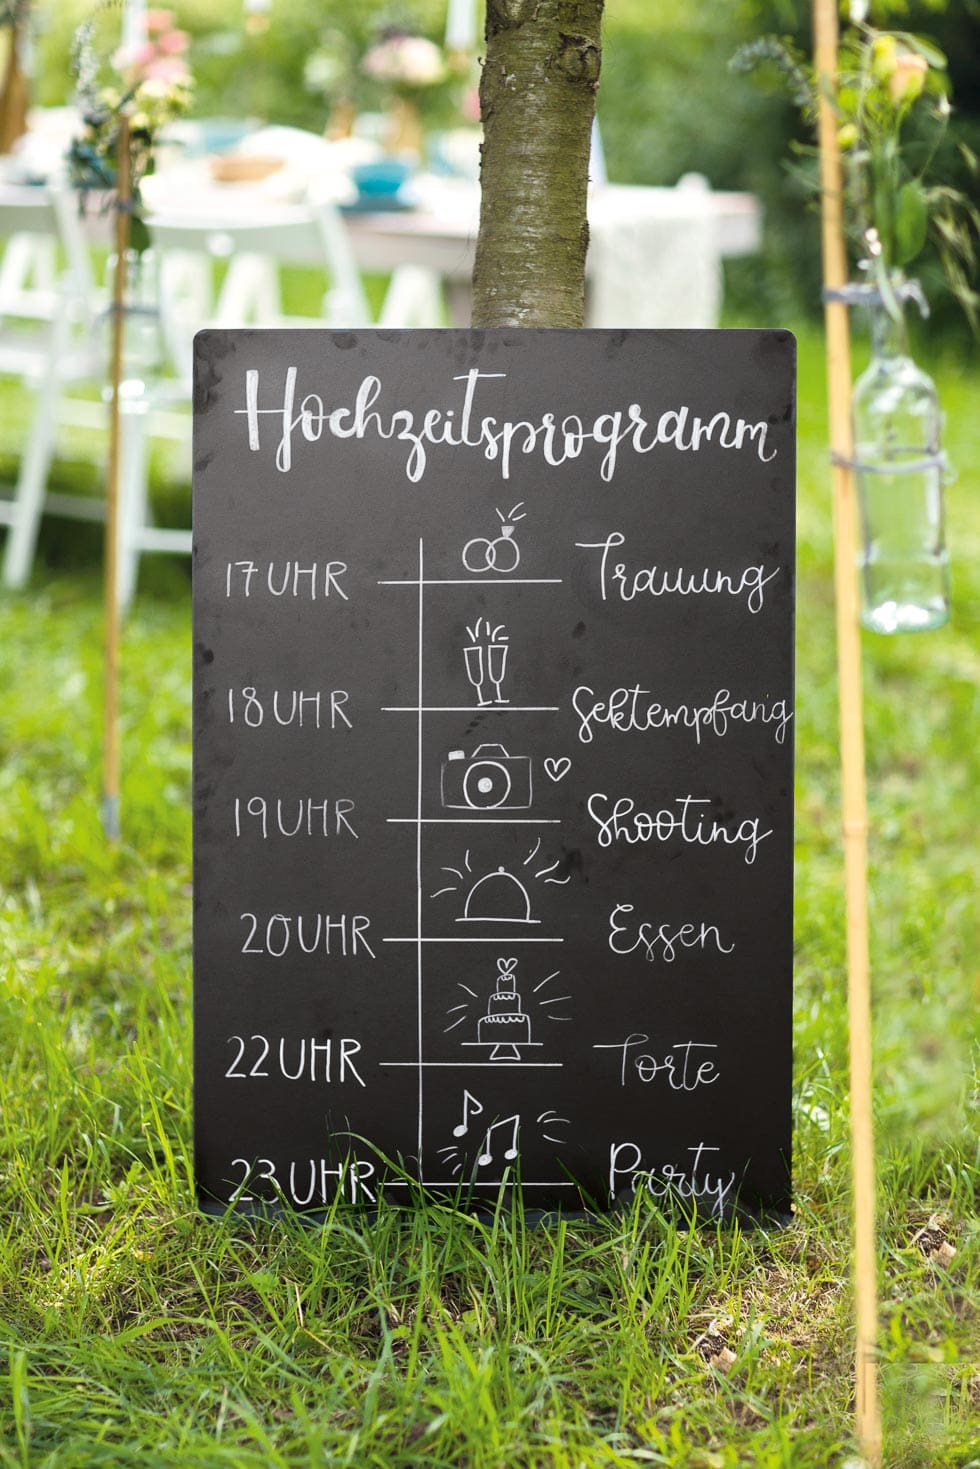 Hochzeitsprogramm
17 UHR Trauung
18 UHR Sektempfang
19 UHR Shooting
20 UHR Essen
22 UHR Torte
23 UHR Party